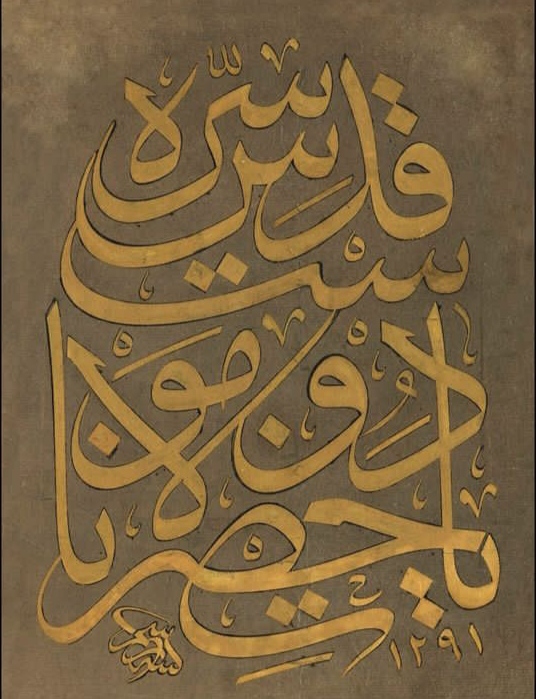 يا حضرت
مولانا
دوست
قدس سره
١٢٩١